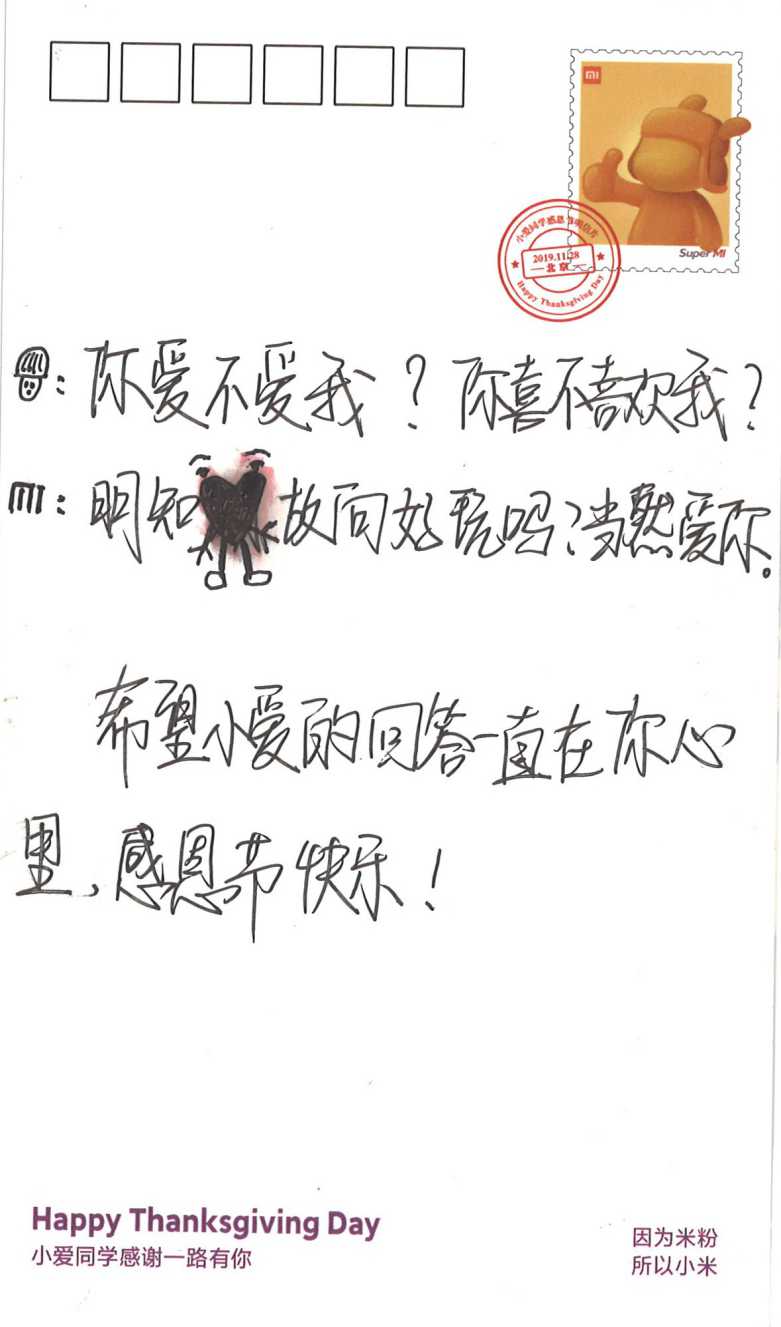 mi
Super MI
小爱同学感恩节明信片
2019.11.28
北京
Happy Thanksgiving Day
:你爱不爱我?你喜不喜欢我?
MI:明知故问好玩吗?当然爱你。
希望小爱的回答一直在你心
里,感恩节快乐!
Happy Thanksgiving Day
小爱同学感谢一路有你
因为米粉
所以小米